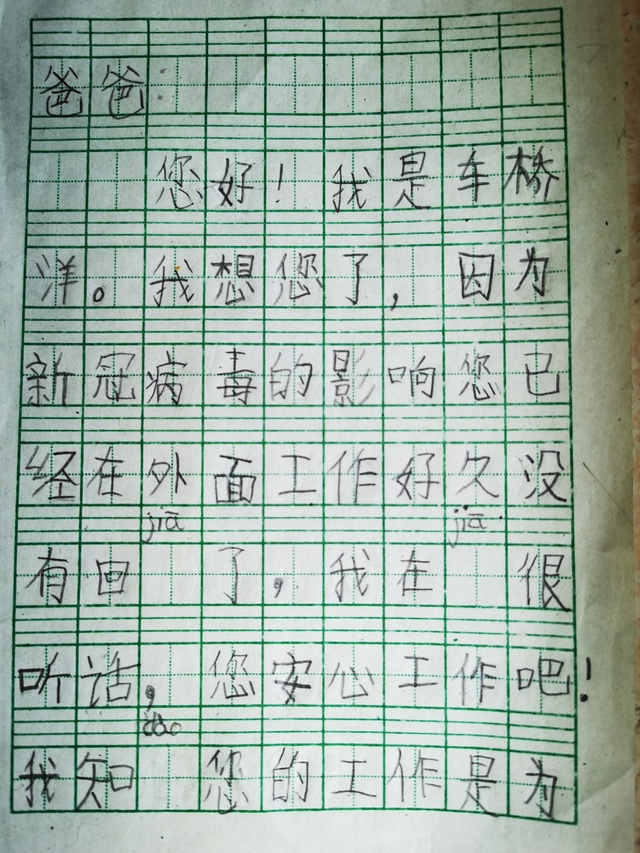 爸爸:
您好！我是车桥
洋。我想您了，因为
新冠病毒的影响您已
经在外面工作好久没
jiā jiā
有回 了，我在 很
听话，您安心工作吧！
dào
我知 您的工作是为